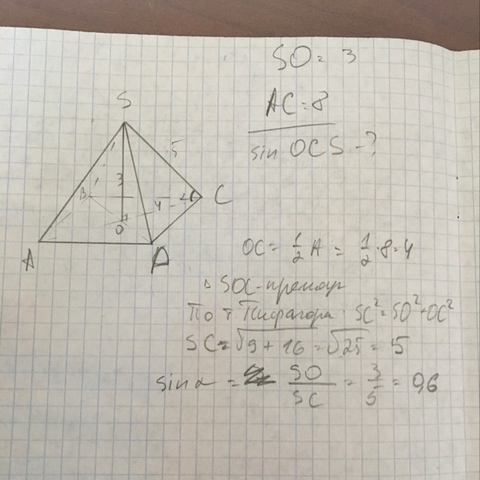 SO = 3
AC = 8
sin OCS - ?
S
5
3
B
4
α
C
O
A
D
OC = 1/2 A = 1/2 · 8 = 4
△ SOC - прямоуг
По т Пифагора SC² = SO² + OC²
SC = √9 + 16 = √25 = 5
sin α = SO/SC = 3/5 = 0,6